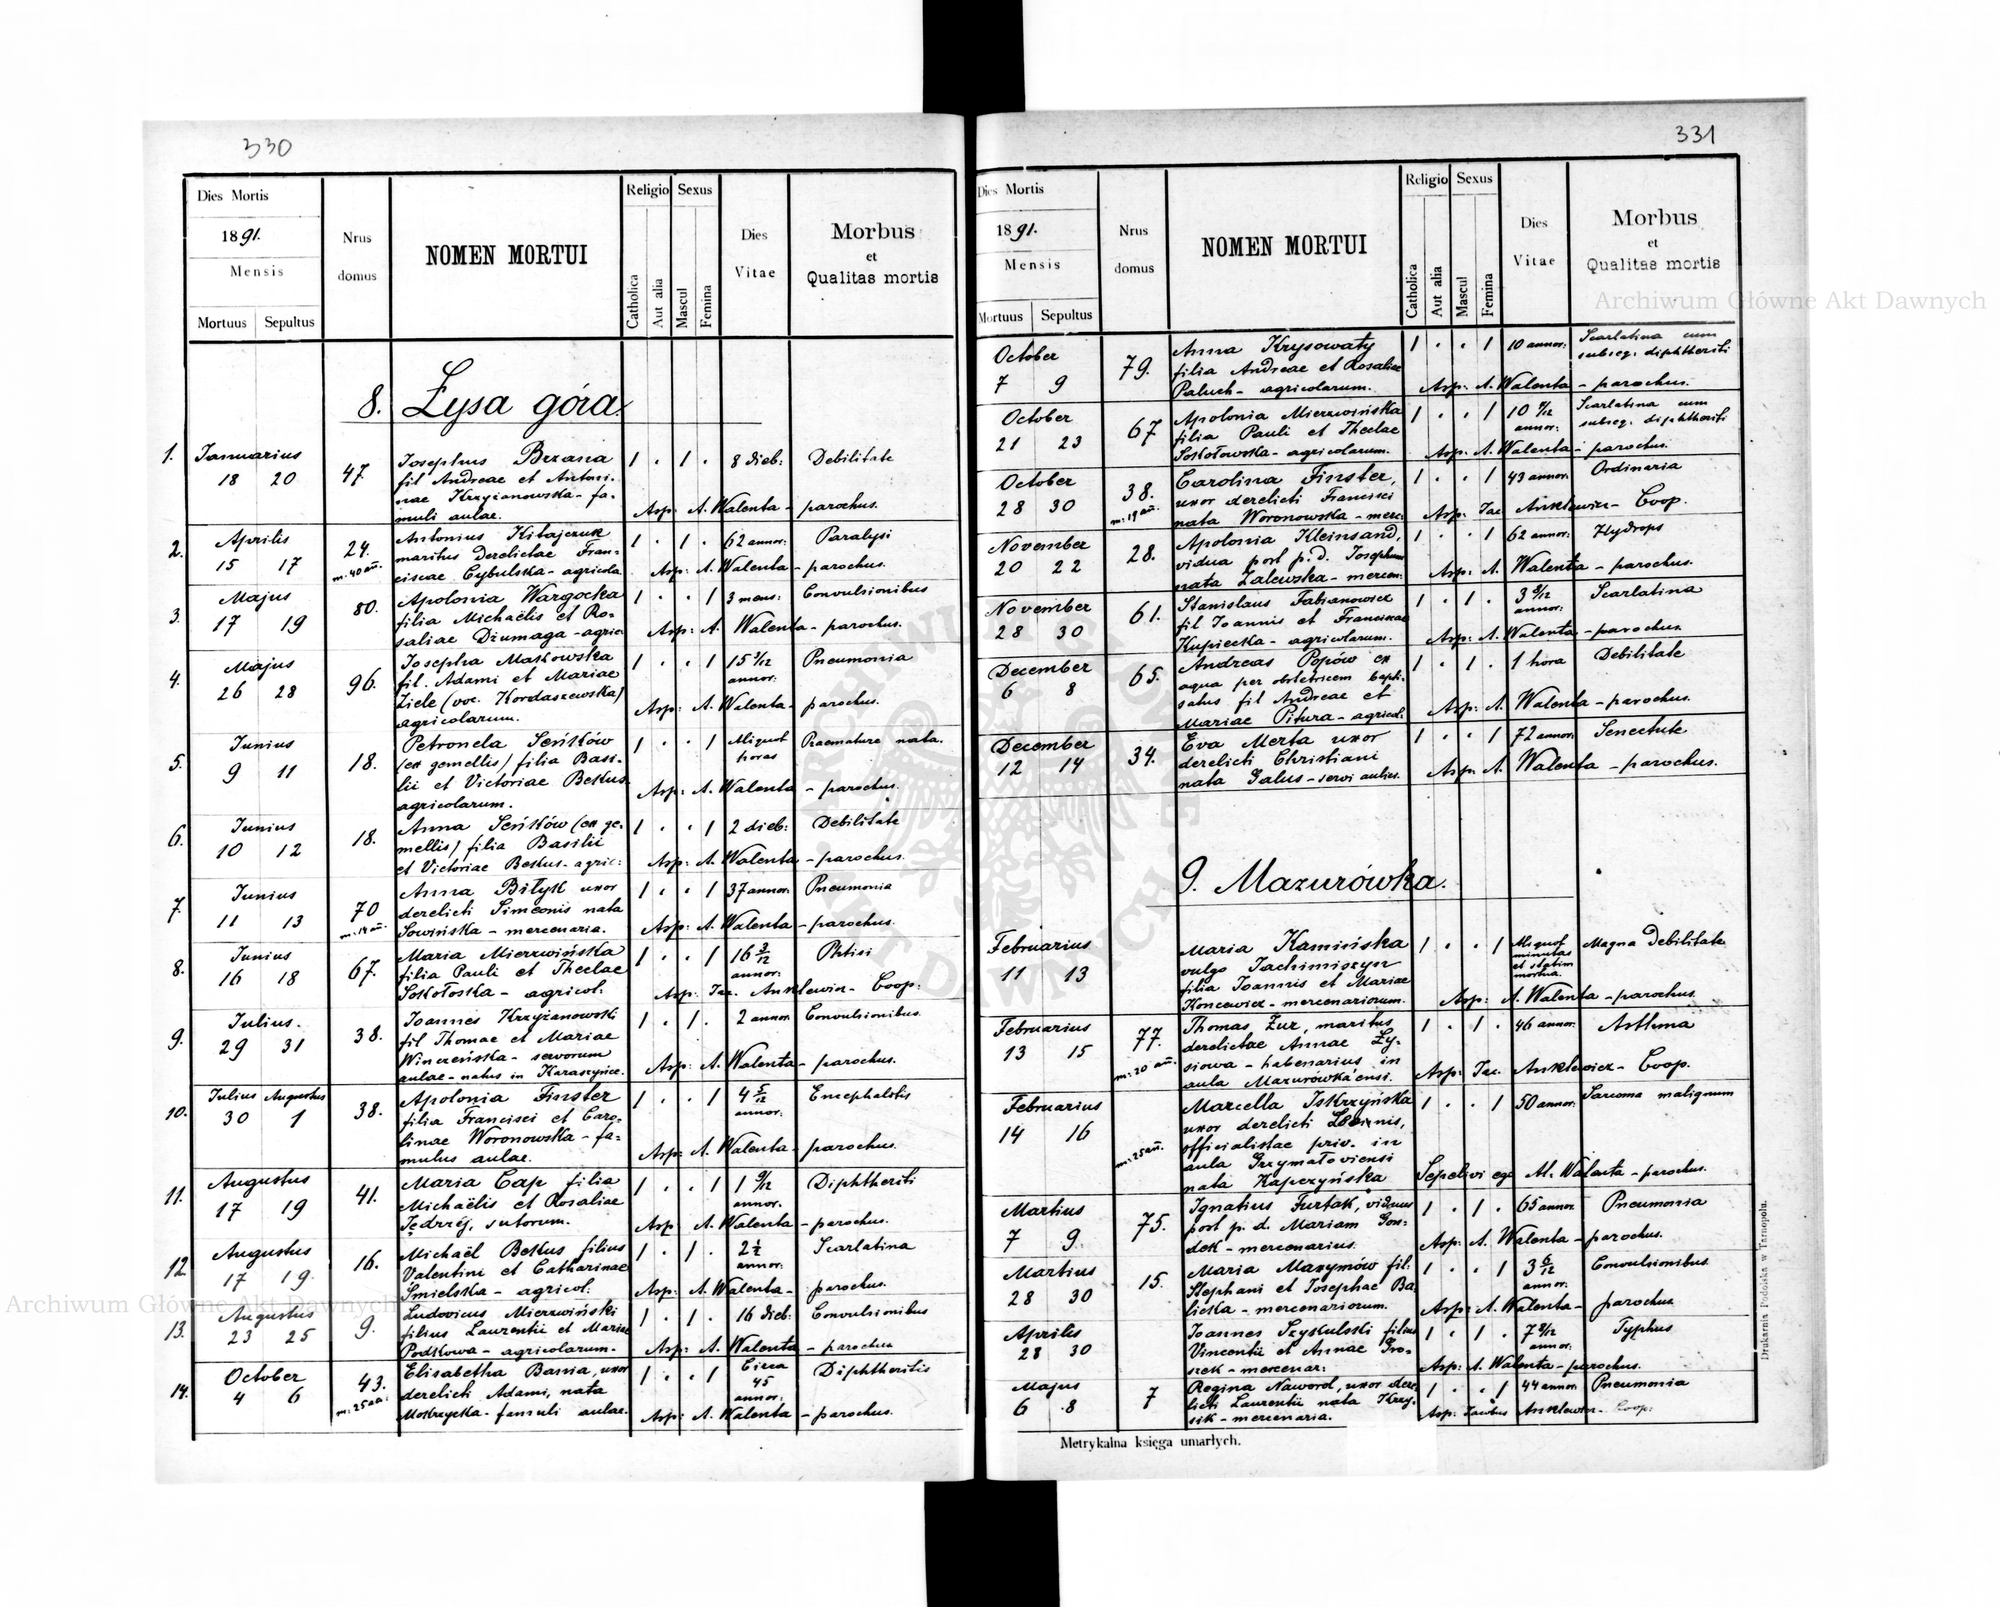 330
Dies Mortis
1891.
Mensis
Mortuus Sepultus
Nrus
domus
NOMEN MORTUI
Religio
Catholica
Aut alia
Sexus
Mascul
Femina
Dies
Vitae
Morbus
et
Qualitas mortis
8. Łysa góra.
1. Januarius
18 20
47.
Josephus Brzana
fil Andreae et Antoni-
nae Krzyżanowska - fa-
muli aulae.
1 . 1 . 8 dieb: Debilitate
Asp: A. Walenta - parochus.
2. Aprilis
15 17
24.
m: 40 an:
Antonius Kitajczuk
maritus derelictae Fran-
ciscae Cybulska - agricola
1 . 1 . 62 annor: Paralysi
Asp: A. Walenta - parochus.
3. Majus
17 19
80.
Apolonia Wargocka
filia Michaëlis et Ro-
saliae Dziumaga - agric
1 . . 1 3 mens: Convulsionibus
Asp: A. Walenta - parochus.
4. Majus
26 28
96.
Josepha Maskowska
fil. Adami et Mariae
Ziele (voc. Kordaszewska)
agricolarum.
1 . . 1 15 3/12 annor: Pneumonia
Asp: A. Walenta - parochus.
5. Junius
9 11
18.
Petronela Seńków
(ex gemellis) filia Basi-
lii et Victoriae Beskus
agricolarum.
1 . . 1 Aliquot horas Praemature nata.
Asp: A. Walenta - parochus.
6. Junius
10 12
18.
Anna Seńków (ex ge-
mellis) filia Basilii
et Victoriae Beskus - agric:
1 . . 1 2 dieb: Debilitate
Asp: A. Walenta - parochus.
7. Junius
11 13
70
m: 14 an:
Anna Biłyk uxor
derelicti Simeonis nata
Sowińska - mercenaria.
1 . . 1 37 annor: Pneumonia
Asp: A. Walenta - parochus.
8. Junius
16 18
67.
Maria Mierzwińska
filia Pauli et Theclae
Sokołoska - agricol:
1 . . 1 16 3/12 annor: Phtisi
Asp: Jac. Anklewicz - Coop:
9. Julius.
29 31
38.
Joannes Krzyżanowski
fil Thomae et Mariae
Winczeńska - servorum
aulae - natus in Karaszyńce.
1 . 1 . 2 annor Convulsionibus.
Asp: A. Walenta - parochus.
10. Julius Augustus
30 1
38.
Apolonia Finster
filia Francisci et Caro-
linae Woronowska - fa-
mulus aulae.
1 . . 1 4 5/12 annor: Encephalotis
Asp: A. Walenta - parochus.
11. Augustus
17 19
41.
Maria Cap filia
Michaëlis et Rosaliae
Jędrzej, sutorum.
1 . . 1 1 9/12 annor. Diphtheriti
Asp A. Walenta - parochus.
12 Augustus
17 19.
16.
Michaël Beskus filius
Valentini et Catharinae
Śmielska - agricol:
1 . 1 . 2 1/2 annor: Scarlatina
Asp: A. Walenta - parochus.
13. Augustus
23 25
9.
Ludovicus Mierzwiński
filius Laurentii et Mariae
Podkowa - agricolarum.
1 . 1 . 16 dieb: Convulsionibus
Asp: A. Walenta - parochus
14. October
4 6
43.
m: 25 an:
Elisabetha Bania, uxor
derelicti Adami, nata
Mokrzycka - famuli aulae.
1 . . 1 Circa 45 annor: Diphtheritis
Asp: A. Walenta - parochus.
331
Dies Mortis
1891.
Mensis
Mortuus Sepultus
Nrus
domus
NOMEN MORTUI
Religio
Catholica
Aut alia
Sexus
Mascul
Femina
Dies
Vitae
Morbus
et
Qualitas mortis
October
7 9
79.
Anna Krysowaty
filia Andreae et Rosaliae
Paluch - agricolarum.
1 . . 1 10 annor: Scarlatina cum
subseq: diphtheriti
Asp: A. Walenta - parochus.
October
21 23
67
Apolonia Mierzwińska
filia Pauli et Theclae
Sokołowska - agricolarum.
1 . . 1 10 9/12 annor: Scarlatina cum
subseq: diphtheriti
Asp: A. Walenta - parochus.
October
28 30
38.
m: 19 an:
Carolina Finster,
uxor derelicti Francisci
nata Woronowska - merc:
1 . . 1 43 annor: Ordinaria
Asp: Jac Anklewicz - Coop.
November
20 22
28.
Apolonia Kleinsand,
vidua post p. d. Josephum
nata Zalewska - mercen:
1 . . 1 62 annor: Hydrops
Asp: A Walenta - parochus.
November
28 30
61.
Stanislaus Fabianowicz
fil Joannis et Franciscae
Kupiecka - agricolarum.
1 . 1 . 3 9/12 annor: Scarlatina
Asp: A. Walenta - parochus.
December
6 8
65.
Andreas Popów ex
aqua per obstetricem bapti-
satus fil Andreae et
Mariae Pitura - agricol:
1 . 1 . 1 hora Debilitate
Asp: A. Walenta - parochus.
December
12 14
34.
Eva Merta uxor
derelicti Christiani
nata Galus - servi aulici.
1 . . 1 72 annor: Senectute
Asp: A. Walenta - parochus.
9. Mazurówka.
Februarius
11 13
Maria Kamińska
vulgo Jachimiszyn
filia Joannis et Mariae
Koncewicz - mercenariorum.
1 . . 1 Aliquot minutas et statim mortua. Magna Debilitate
Asp: A. Walenta - parochus.
Februarius
13 15
77.
m: 20 an:
Thomas Żur, maritus
derelictae Annae Ły-
siowa - habenarius in
aula Mazurówkaensi.
1 . 1 . 46 annor. Asthma
Asp: Jac. Anklewicz - Coop.
Februarius
14 16
m: 25 an:
Marcella Iskrzyńska
uxor derelicti
officialistae priv. in
aula Grzymałoviensi
nata Kapczyńska
1 . . 1 50 annor: Sarcoma malignum
Sepelivi ego Al. Walenta - parochus.
Martius
7 9.
75.
Ignatius Furtak, viduus
post p. d. Mariam Gon-
dek - mercenarius.
1 . 1 . 65 annor. Pneumonia
Asp: A. Walenta - parochus.
Martius
28 30
15.
Maria Maxymów fil:
Stephani et Josephae Ba-
licka - mercenariorum.
1 . . 1 3 6/12 annor: Convulsionibus.
Asp: A. Walenta - parochus
Aprilis
28 30
Joannes Szykulski filius
Vincentii et Annae Gro-
szek - mercenar:
1 . 1 . 7 2/12 annor: Typhus
Asp: A. Walenta - parochus.
Majus
6 8
7
Regina Naword, uxor dere-
licti Laurentii nata Krzy-
sik - mercenaria.
1 . . 1 44 annor: Pneumonia
Asp: Jacobus Anklewicz - Coop:
Metrykalna księga umarłych.
Drukarnia Podolska w Tarnopolu.
Archiwum Główne Akt Dawnych
Archiwum Główne Akt Dawnych
ARCHIWUM GŁÓWNE AKT DAWNYCH